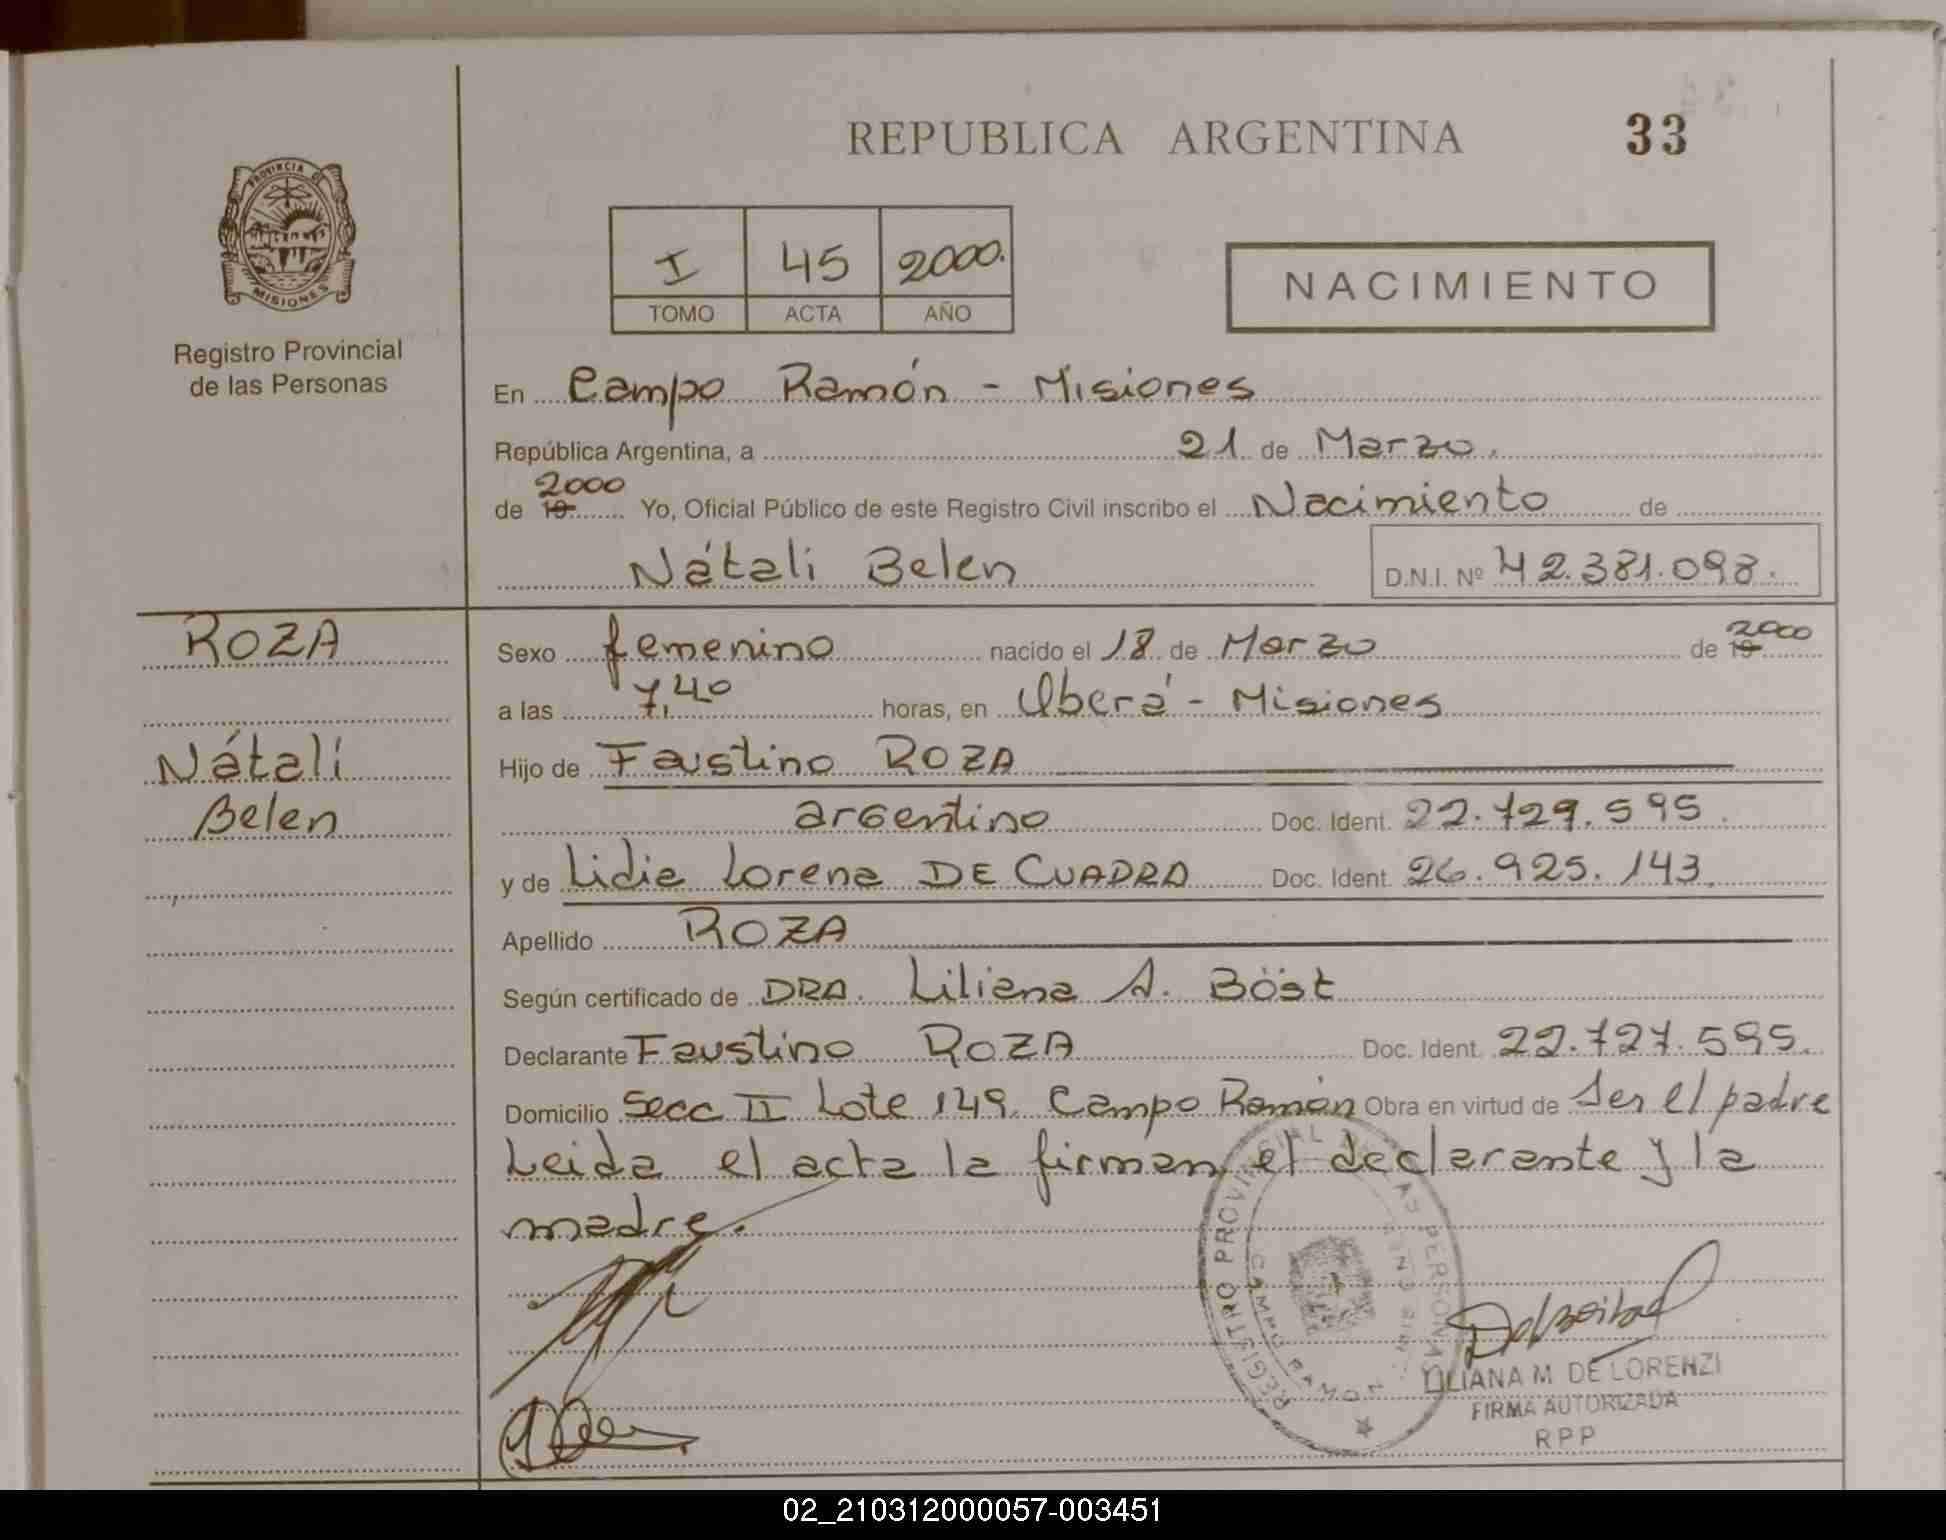 REPUBLICA ARGENTINA 33
PROVINCIA DE
MISIONES
Registro Provincial
de las Personas
I 45 2000.
TOMO ACTA AÑO
NACIMIENTO
En Campo Ramón - Misiones
República Argentina, a 21 de Marzo.
2000
de 19 Yo, Oficial Público de este Registro Civil inscribo el Nacimiento de
Nátali Belen D.N.I. Nº 42.381.098.
ROZA
Nátali
Belen
Sexo femenino nacido el 18 de Marzo de 19 2000
a las 7,40 horas, en Oberá - Misiones
Hijo de Faustino ROZA
argentino Doc. Ident. 22.729.595.
y de Lidia Lorena DE CUADRA Doc. Ident. 26.925.143.
Apellido ROZA
Según certificado de DRA. Liliana A. Böst
Declarante Faustino ROZA Doc. Ident. 22.727.595.
Domicilio Secc II Lote 149 Campo Ramón Obra en virtud de Ser el padre
Leida el acta la firman el declarante y la
madre.
REGISTRO PROVINCIAL DE LAS PERSONAS
CAMPO RAMON
LILIANA M. DE LORENZI
FIRMA AUTORIZADA
RPP
02_210312000057-003451